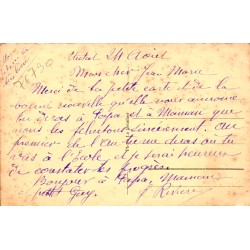 24 Août
Mon cher Jean Marie
Merci de ta petite carte et de la
nouvelle qu'elle nous annonce
tu diras à Papa et à Maman que
nous les félicitons sincèrement. Au
premier de l'an tu me diras où tu
vas à l'Ecole et je serai heureux
de constater tes progrès
Bonjour à Papa, Maman
petit Guy.
J. Rivière
76790